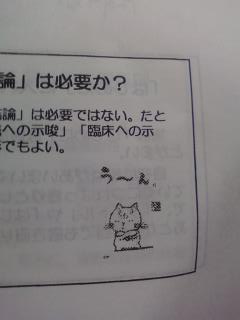 論」は必要か？
論」は必要ではない。たと
への示唆」「臨床への示
でもよい。
う～ん。